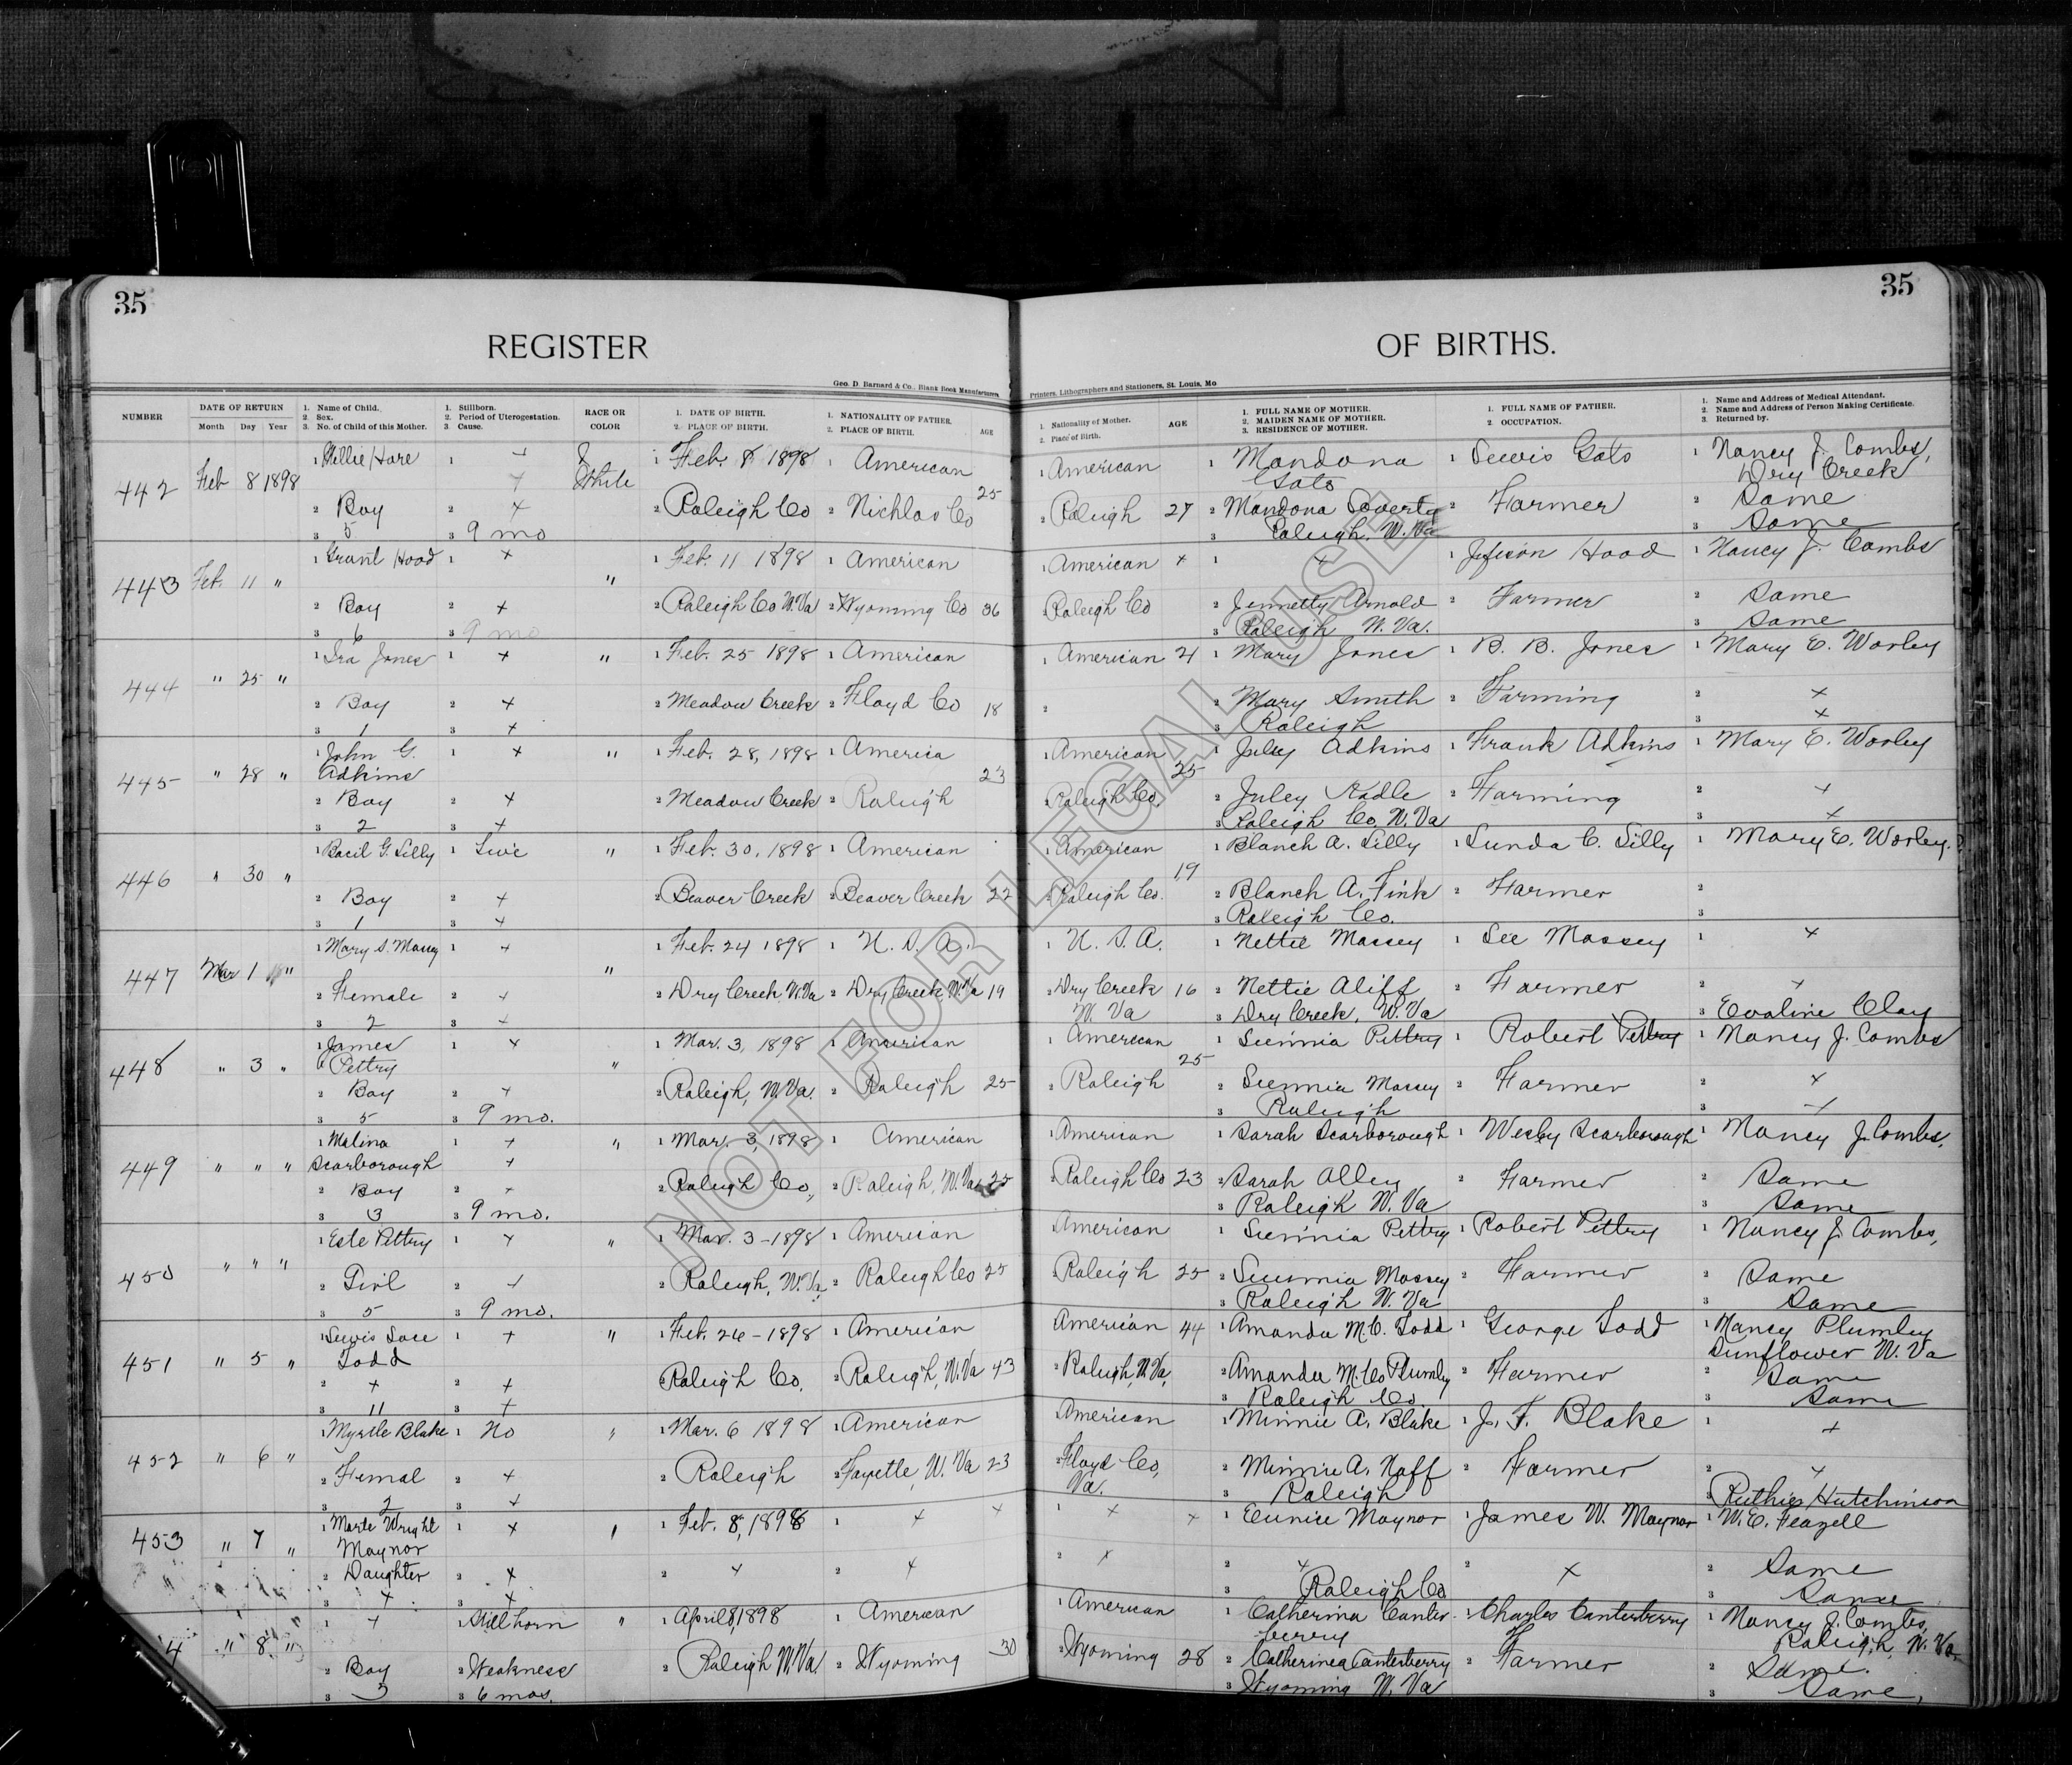 35
35
REGISTER
OF BIRTHS.
Geo. D. Barnard & Co., Blank Book Manufacturers,
Printers, Lithographers and Stationers, St. Louis, Mo
NUMBER
DATE OF RETURN
Month Day Year
1. Name of Child.
2. Sex.
3. No. of Child of this Mother.
1. Stillborn.
2. Period of Uterogestation.
3. Cause.
RACE OR
COLOR
1. DATE OF BIRTH.
2. PLACE OF BIRTH.
1. NATIONALITY OF FATHER.
2. PLACE OF BIRTH.
AGE
1. Nationality of Mother.
2. Place of Birth.
AGE
1. FULL NAME OF MOTHER.
2. MAIDEN NAME OF MOTHER.
3. RESIDENCE OF MOTHER.
1. FULL NAME OF FATHER.
2. OCCUPATION.
1. Name and Address of Medical Attendant.
2. Name and Address of Person Making Certificate.
3. Returned by.
442 Feb 8 1898 1 1 + White 1 Feb. 8 1898 1 American 1 American 1 Mandona 1 Lewis Gato 1 Nancy J. Combs,
Gato Dry Creek
2 Boy 2 + 2 Raleigh Co 2 Nichlas Co 25 2 Raleigh 27 2 Mandona 2 Farmer 2 Same
3 5 3 9 mo 3 Raleigh, W. Va 3 Same
443 Feb. 11 " 1 Grant Hood 1 + " 1 Feb. 11 1898 1 American 1 American + 1 + 1 Hood 1 Nancy J. Combs
2 Boy 2 + 2 Raleigh Co W. Va 2 Wyoming Co 36 2 Raleigh Co 2 Jennetty Arnold 2 Farmer 2 Same
3 6 3 9 mo 3 Raleigh W. Va. 3 Same
444 " 25 " 1 Ira Jones 1 + " 1 Feb. 25 1898 1 American 1 American 21 1 Mary Jones 1 B. B. Jones 1 Mary E. Worley
2 Boy 2 + 2 Meadow Creek 2 Floyd Co 18 2 2 Mary Smith 2 Farming 2 +
3 1 3 + 3 Raleigh 3 +
445 " 28 " 1 John G. 1 + " 1 Feb. 28, 1898 1 America 1 American 1 Juley Adkins 1 Frank Adkins 1 Mary E. Worley
Adkins 23 25
2 Boy 2 + 2 Meadow Creek 2 Raleigh 2 Raleigh Co. 2 Juley 2 Farming 2 +
3 2 3 + 3 Raleigh Co, W. Va 3 +
446 " 30 " 1 Bacil G. Lilly 1 Live " 1 Feb. 30, 1898 1 American 1 American 1 Blanch A. Lilly 1 Lunda C. Lilly 1 Mary E. Worley.
19
2 Boy 2 + 2 Beaver Creek 2 Beaver Creek 22 2 Raleigh Co. 2 Blanch A. Fink 2 Farmer 2
3 1 3 + 3 Raleigh Co. 3
447 Mar 1 " 1 Mary S. Massey 1 + " 1 Feb. 24 1898 1 U. S. A. 1 U. S. A. 1 Nettie Massey 1 Lee Massey 1 +
2 Female 2 + 2 Dry Creek W. Va 2 Dry Creek W. Va 19 2 Dry Creek 16 2 Nettie Aliff 2 Farmer 2 +
3 2 3 + W. Va 3 Dry Creek, W. Va 3 Evaline Clay
448 " 3 " 1 James 1 + " 1 Mar. 3, 1898 1 American 1 American 1 Pettry 1 Robert Pettry 1 Nancy J. Combs
Pettry 25
2 Boy 2 + 2 Raleigh, W. Va. 2 Raleigh 25 2 Raleigh 2 Massey 2 Farmer 2 +
3 5 3 9 mo. 3 Raleigh 3 +
449 " " " 1 Malina 1 + " 1 Mar. 3, 1898 1 American 1 American 1 Sarah Scarborough 1 Wesley Scarborough 1 Nancy J. Combs,
Scarborough +
2 Boy 2 + 2 Raleigh Co, 2 Raleigh, W. Va 25 2 Raleigh Co 23 2 Sarah Alley 2 Farmer 2 Same
3 3 3 9 mo. 3 Raleigh W. Va 3 Same
450 " " " 1 Este Pettry 1 + " 1 Mar. 3 - 1898 1 American American 1 Pettry 1 Robert Pettry 1 Nancy J. Combs,
2 Girl 2 + 2 Raleigh, W. Va, 2 Raleigh Co 25 2 Raleigh 25 2 Massey 2 Farmer 2 Same
3 5 3 9 mo. 3 Raleigh W. Va 3 Same
451 " 5 " 1 Lewis 1 + " 1 Feb. 26 - 1898 1 American American 44 1 Amanda M. C. Todd 1 George Todd 1 Nancy Plumley
Todd Sunflower W. Va
2 + 2 + Raleigh Co. 2 Raleigh, W. Va 43 2 Raleigh, W. Va, 2 Amanda M. C. Plumly 2 Farmer 2 Same
3 11 3 + 3 Raleigh Co. 3 Same
452 " 6 " 1 Myrtle Blake 1 No " 1 Mar. 6 1898 1 American American 1 Minnie A. Blake 1 J. F. Blake 1 +
2 Femal 2 + 2 Raleigh 2 Fayette, W. Va 23 2 Floyd Co, 2 Minnie A. Naff 2 Farmer 2 +
3 2 3 + Va. 3 Raleigh 3 Ruthie Hutchinson
453 " 7 " 1 Marte Wright 1 + " 1 Feb. 8, 1898 1 + + 1 + + 1 Eunice Maynor 1 James W. Maynor 1 W. E. Feazell
Maynor
2 Daughter 2 + 2 + 2 + 2 + 2 + 2 + 2 Same
3 + 3 + 3 Raleigh Co 3 Same
4 " 8 " 1 + 1 Still born " 1 April 8, 1898 1 American 1 American 1 Catherina Canter- 1 Charles Canterberry 1 Nancy J. Combs
berry Raleigh, W. Va
2 Boy 2 Weakness 2 Raleigh W. Va. 2 Wyoming 30 2 Wyoming 28 2 Catherinea Canterberry 2 Farmer 2 Same.
3 3 3 6 mos. 3 Wyoming W. Va 3 Same,
NOT FOR LEGAL USE